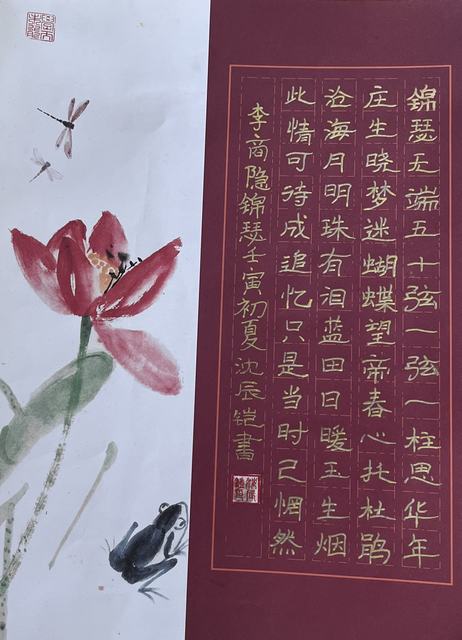 錦瑟无端五十弦一弦一柱思华年
庄生晓梦迷蝴蝶望帝春心托杜鹃
沧海月明珠有泪蓝田日暖玉生烟
此情可待成追忆只是当时已惘然
李商隐錦瑟壬寅初夏沈辰铠書